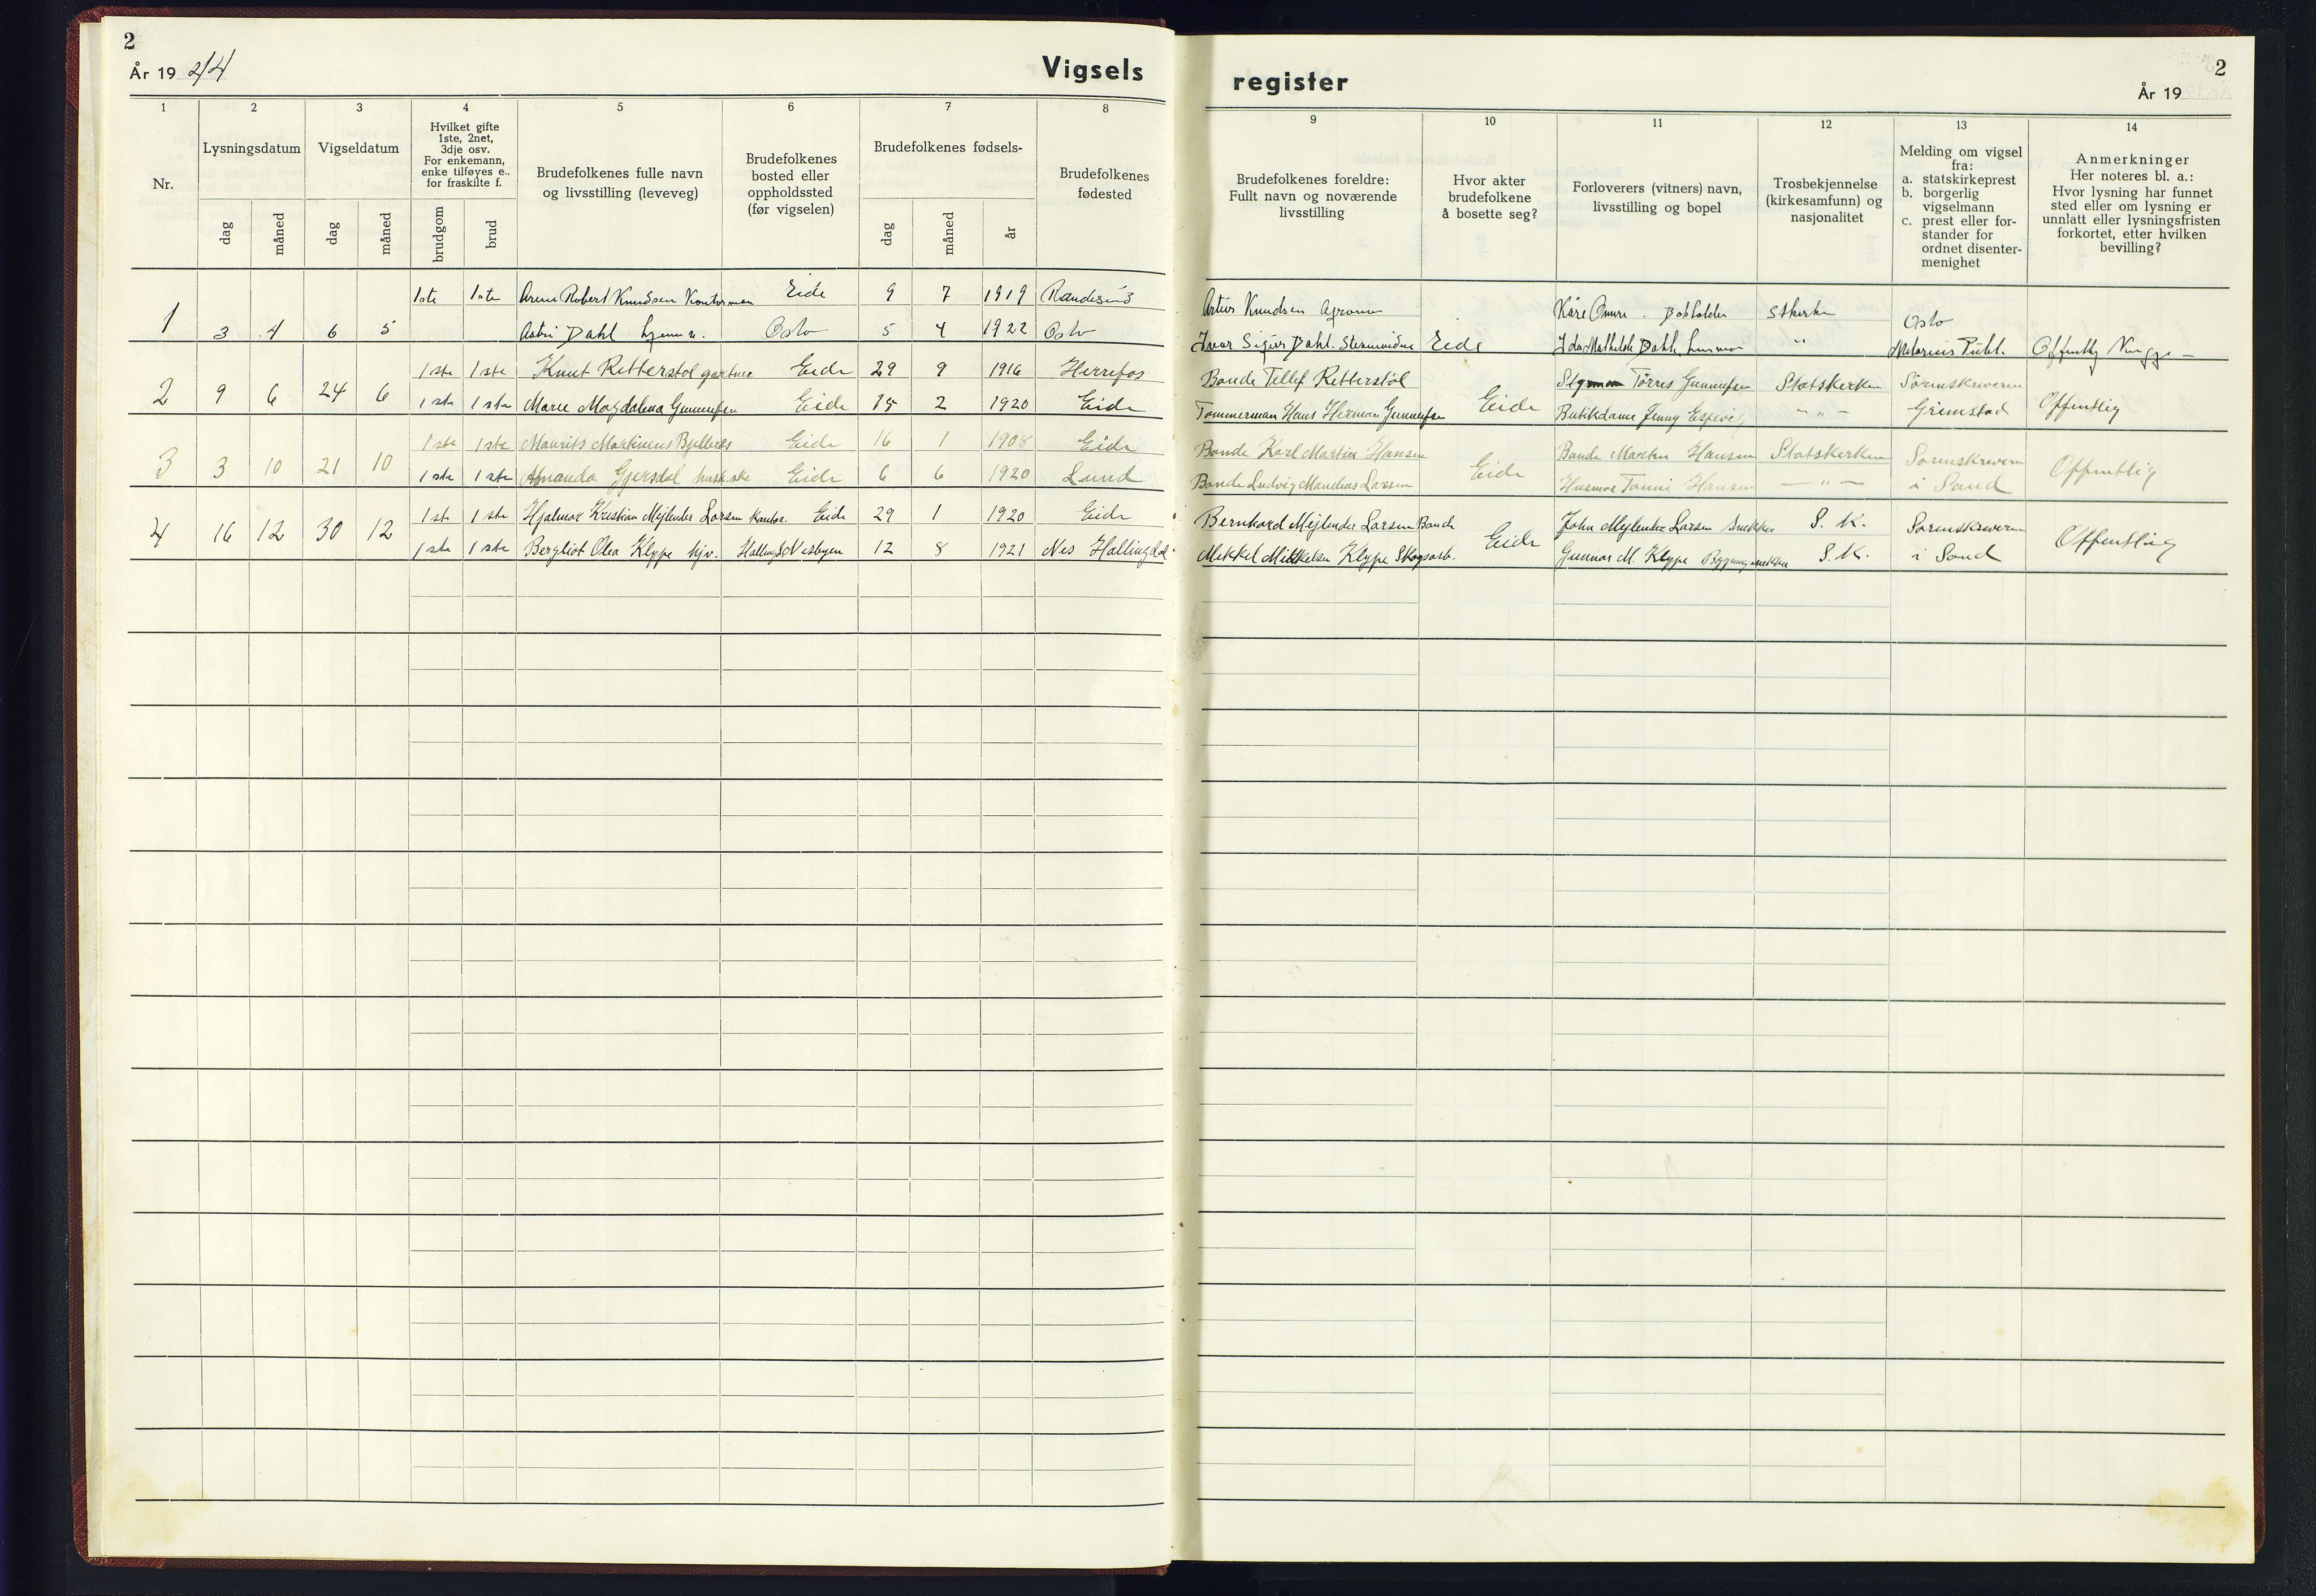 2
År 19 44
Vigsels
1 2 3 4 5 6 7 8
Nr.
Lysningsdatum
Vigseldatum
Hvilket gifte
1ste, 2net,
3dje osv.
For enkemann,
enke tilføyes e..
for fraskilte f.
Brudefolkenes fulle navn
og livsstilling (leveveg)
Brudefolkenes
bosted eller
oppholdssted
(før vigselen)
Brudefolkenes fødsels-
Brudefolkenes
fødested
dag måned dag måned brudgom brud dag måned år
1ste 1ste Robert Knudsen Kontorman Eide 9 7 1919 Randesund
1 3 4 6 5 Astri Dahl Oslo 5 4 1922 Oslo
1 ste 1 ste Knut Retterstøl gartner Eide 29 9 1916 Herrefos
2 9 6 24 6 1 ste 1 ste Marie Magdalena Gunnufsen Eide 15 2 1920 Eide
1 ste 1 ste Maurits Martinius Eide 16 1 1908 Eide
3 3 10 21 10 1 ste 1 ste Amanda Gjersdal Eide 6 6 1920 Lund
1 ste 1 ste Hjalmar Kristian Mejlender Larsen kontor. Eide 29 1 1920 Eide
4 16 12 30 12 1 ste 1 ste Bergliot Olea Klype hjv. Nesbyen 12 8 1921 Nes Hallingdal
register
2
År 19
9 10 11 12 13 14
Brudefolkenes foreldre:
Fullt navn og noværende
livsstilling
Hvor akter
brudefolkene
å bosette seg?
Forloverers (vitners) navn,
livsstilling og bopel
Trosbekjennelse
(kirkesamfunn) og
nasjonalitet
Melding om vigsel
fra:
a. statskirkeprest
b. borgerlig
vigselmann
c. prest eller for-
stander for
ordnet disenter-
menighet
Anmerkninger
Her noteres bl. a.:
Hvor lysning har funnet
sted eller om lysning er
unnlatt eller lysningsfristen
forkortet, etter hvilken
bevilling?
Knudsen Agronom Kåre Omre Stkirke Oslo
Dahl. Eide Ida Mathilde Dahl husmor " Notarius Publ. Offentlig
Bonde Tellef Retterstøl Tørres Gunnufsen Statskirken Sorenskriveren
Tømmerman Hans Herman Gunnufsen Eide Butikdame Jenny Espevig - " - Grimstad Offentlig
Bonde Karl Martin Hansen Bonde Martin Hansen Statskirken Sorenskriveren
Bonde Ludvig Larsen Eide Husmor Hansen - " - i Sand Offentlig
Bernhard Mejlender Larsen Bonde John Mejlender Larsen Snekker S. K. Sorenskriveren
Mikkel Mikkelsen Klype Skogsarb. Eide Gunnar M. Klype Bygningsnekker S. K. i Sand Offentlig